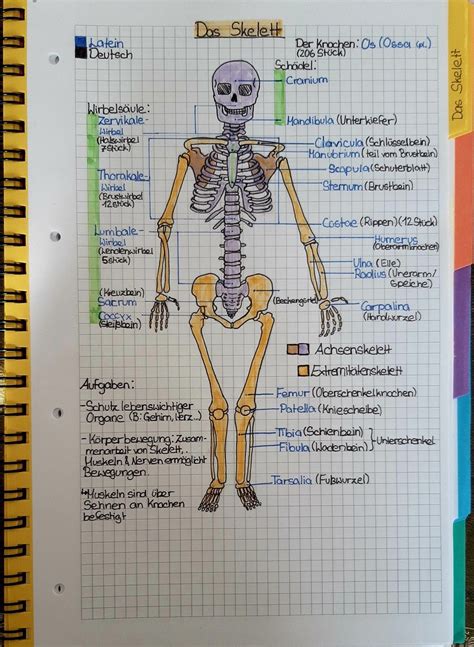 Das Skelett
Latein
Deutsch
Der Knochen: Os (Ossa pl.)
(206 Stück)
Schädel:
Cranium
Mandibula (Unterkiefer)
Clavicula (Schlüsselbein)
Manubrium (teil vom Brustbein)
Scapula (Schulterblatt)
Sternum (Brustbein)
Costae (Rippen) (12 Stück)
Humerus
(Oberarmknochen)
Ulna (Elle)
Radius (Unterarm/
Speiche)
Carpalina
(Handwurzel)
Wirbelsäule:
Zervikale-
Wirbel
(Halswirbel
7 Stück)
Thorakale-
Wirbel
(Brustwirbel
12 Stück)
Lumbale-
Wirbel
(Lendenwirbel
5 Stück)
(Kreuzbein)
Sacrum
Coccyx
(Steißbein)
(Beckengürtel)
Achsenskelett
Extremitätenskelett
Femur (Oberschenkelknochen)
Patella (Kniescheibe)
Tibia (Schienbein)
Fibula (Wadenbein)
Unterschenkel
Tarsalia (Fußwurzel)
Aufgaben:
-Schutz lebenswichtiger
Organe (B: Gehirn, Herz..)
-Körperbewegung: Zusam-
menarbeit von Skelett,
Muskeln & Nerven ermöglicht
Bewegungen.
↳Muskeln sind über
Sehnen an Knochen
befestigt.
Das Skelett